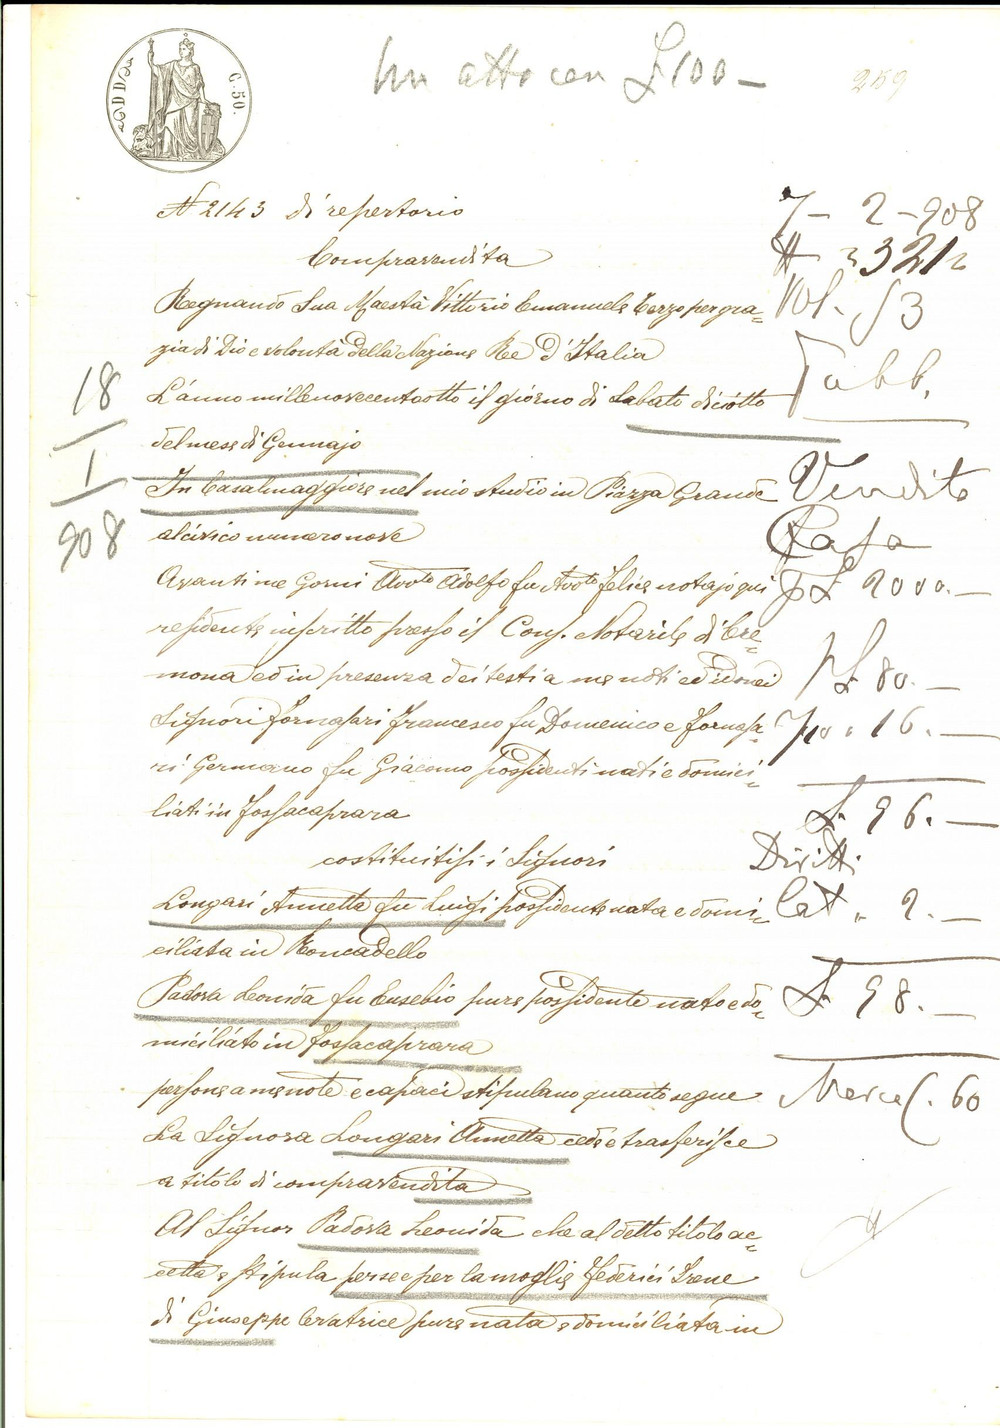 Un atto con £ 100 -
259
C. 50.
N 2143 di repertorio
Compravendita
Regnando Sua Maestà Vittorio Emanuele Terzo per gra=
zia di Dio e volontà della Nazione Re d'Italia
L'anno millenovecentootto il giorno di Sabato diciotto
del mese di Gennajo
In Casalmaggiore nel mio studio in Piazza Grande
al civico numero nove
Avanti me Gorni Avvto Adolfo fu Avvto Felice notajo qui
residente inscritto presso il Cons. Notarile di Cre=
mona ed in presenza dei testi a me noti ed idonei
Signori Fornasari Francesco fu Domenico e Fornasa=
ri Germano fu Giacomo possidenti nati e domici=
liati in Fossacaprara
costituitisi i Signori
Longari Annetta fu Luigi possidente nata e domi=
ciliata in Roncadello
Padova Leonida fu Eusebio pure possidente nato e do=
miciliato in Fossacaprara
persone a me note e capaci stipulano quanto segue
La Signora Longari Annetta cede e trasferisce
a titolo di compravendita
Al Signor Padova Leonida che al detto titolo ac=
cetta e stipula per se e per la moglie Federici Irene
di Giuseppe Ceratrice pure nata e domiciliata in
18
1
908
7 - 2 - 908
# 321
Vol. 53
Fabb.
Vendita
Casa
p £ 2000. -
£ 80. -
7/10 " 16. -
£. 96. -
Diritti
Cat " 2. -
£. 98. -
Merce C. 60